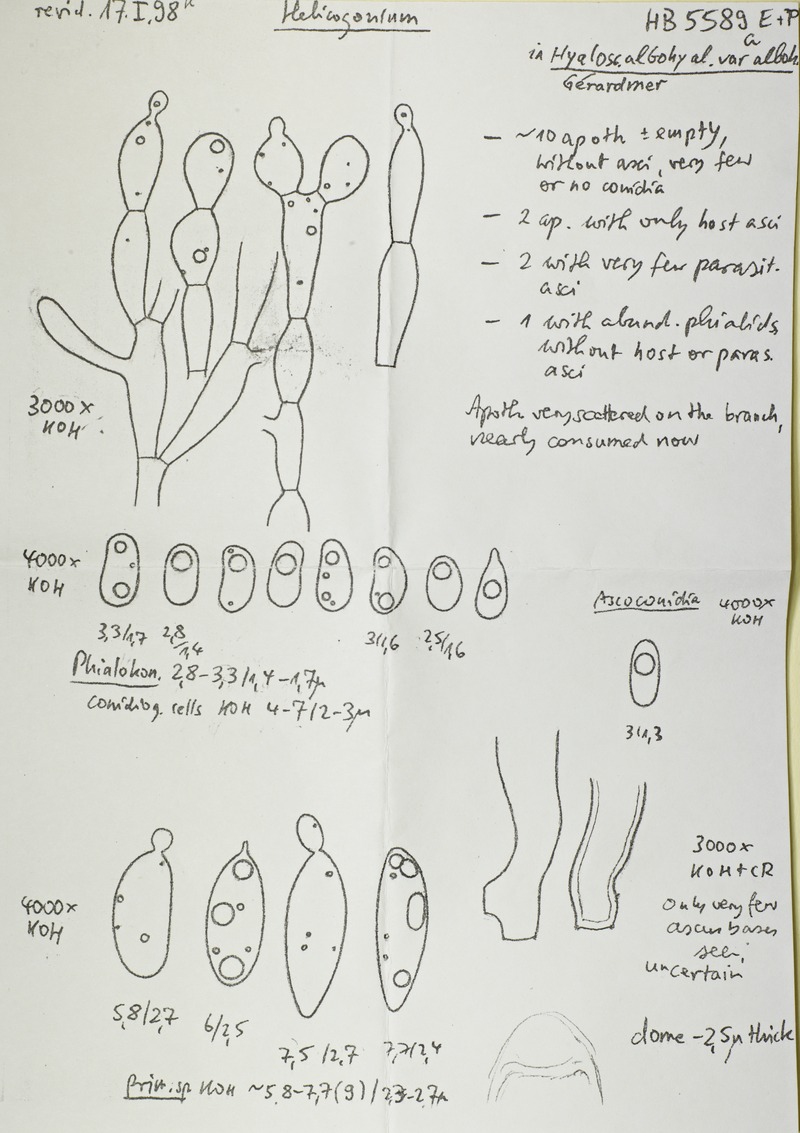 revid. 17.I,98
Helicogonium
HB 5589a E+P
in Hyalosc. albohyal. var alboh.
Gérardmer
— ~10 apoth ± empty,
without asci, very few
or no conidia
— 2 ap. with only host asci
— 2 with very few parasit.
asci
— 1 with abund. phialids
without host or paras.
asci
Apoth very scattered on the branch,
nearly consumed now
3000x
KOH
4000x
KOH
3,3/1,7
2,8/1,4
3/1,6
2,5/1,6
Phialokon. 2,8–3,3/1,4–1,7µ
conidiog. cells KOH 4–7/2–3µ
Ascoconidia 4000x
KOH
3/1,3
3000x
KOH+CR
Only very few
ascus bases
seen,
uncertain
4000x
KOH
5,8/2,7
6/2,5
7,5/2,7
7,7/2,4
Prim.sp KOH ~5,8–7,7(9)/2,3–2,7µ
dome –2,5µ thick